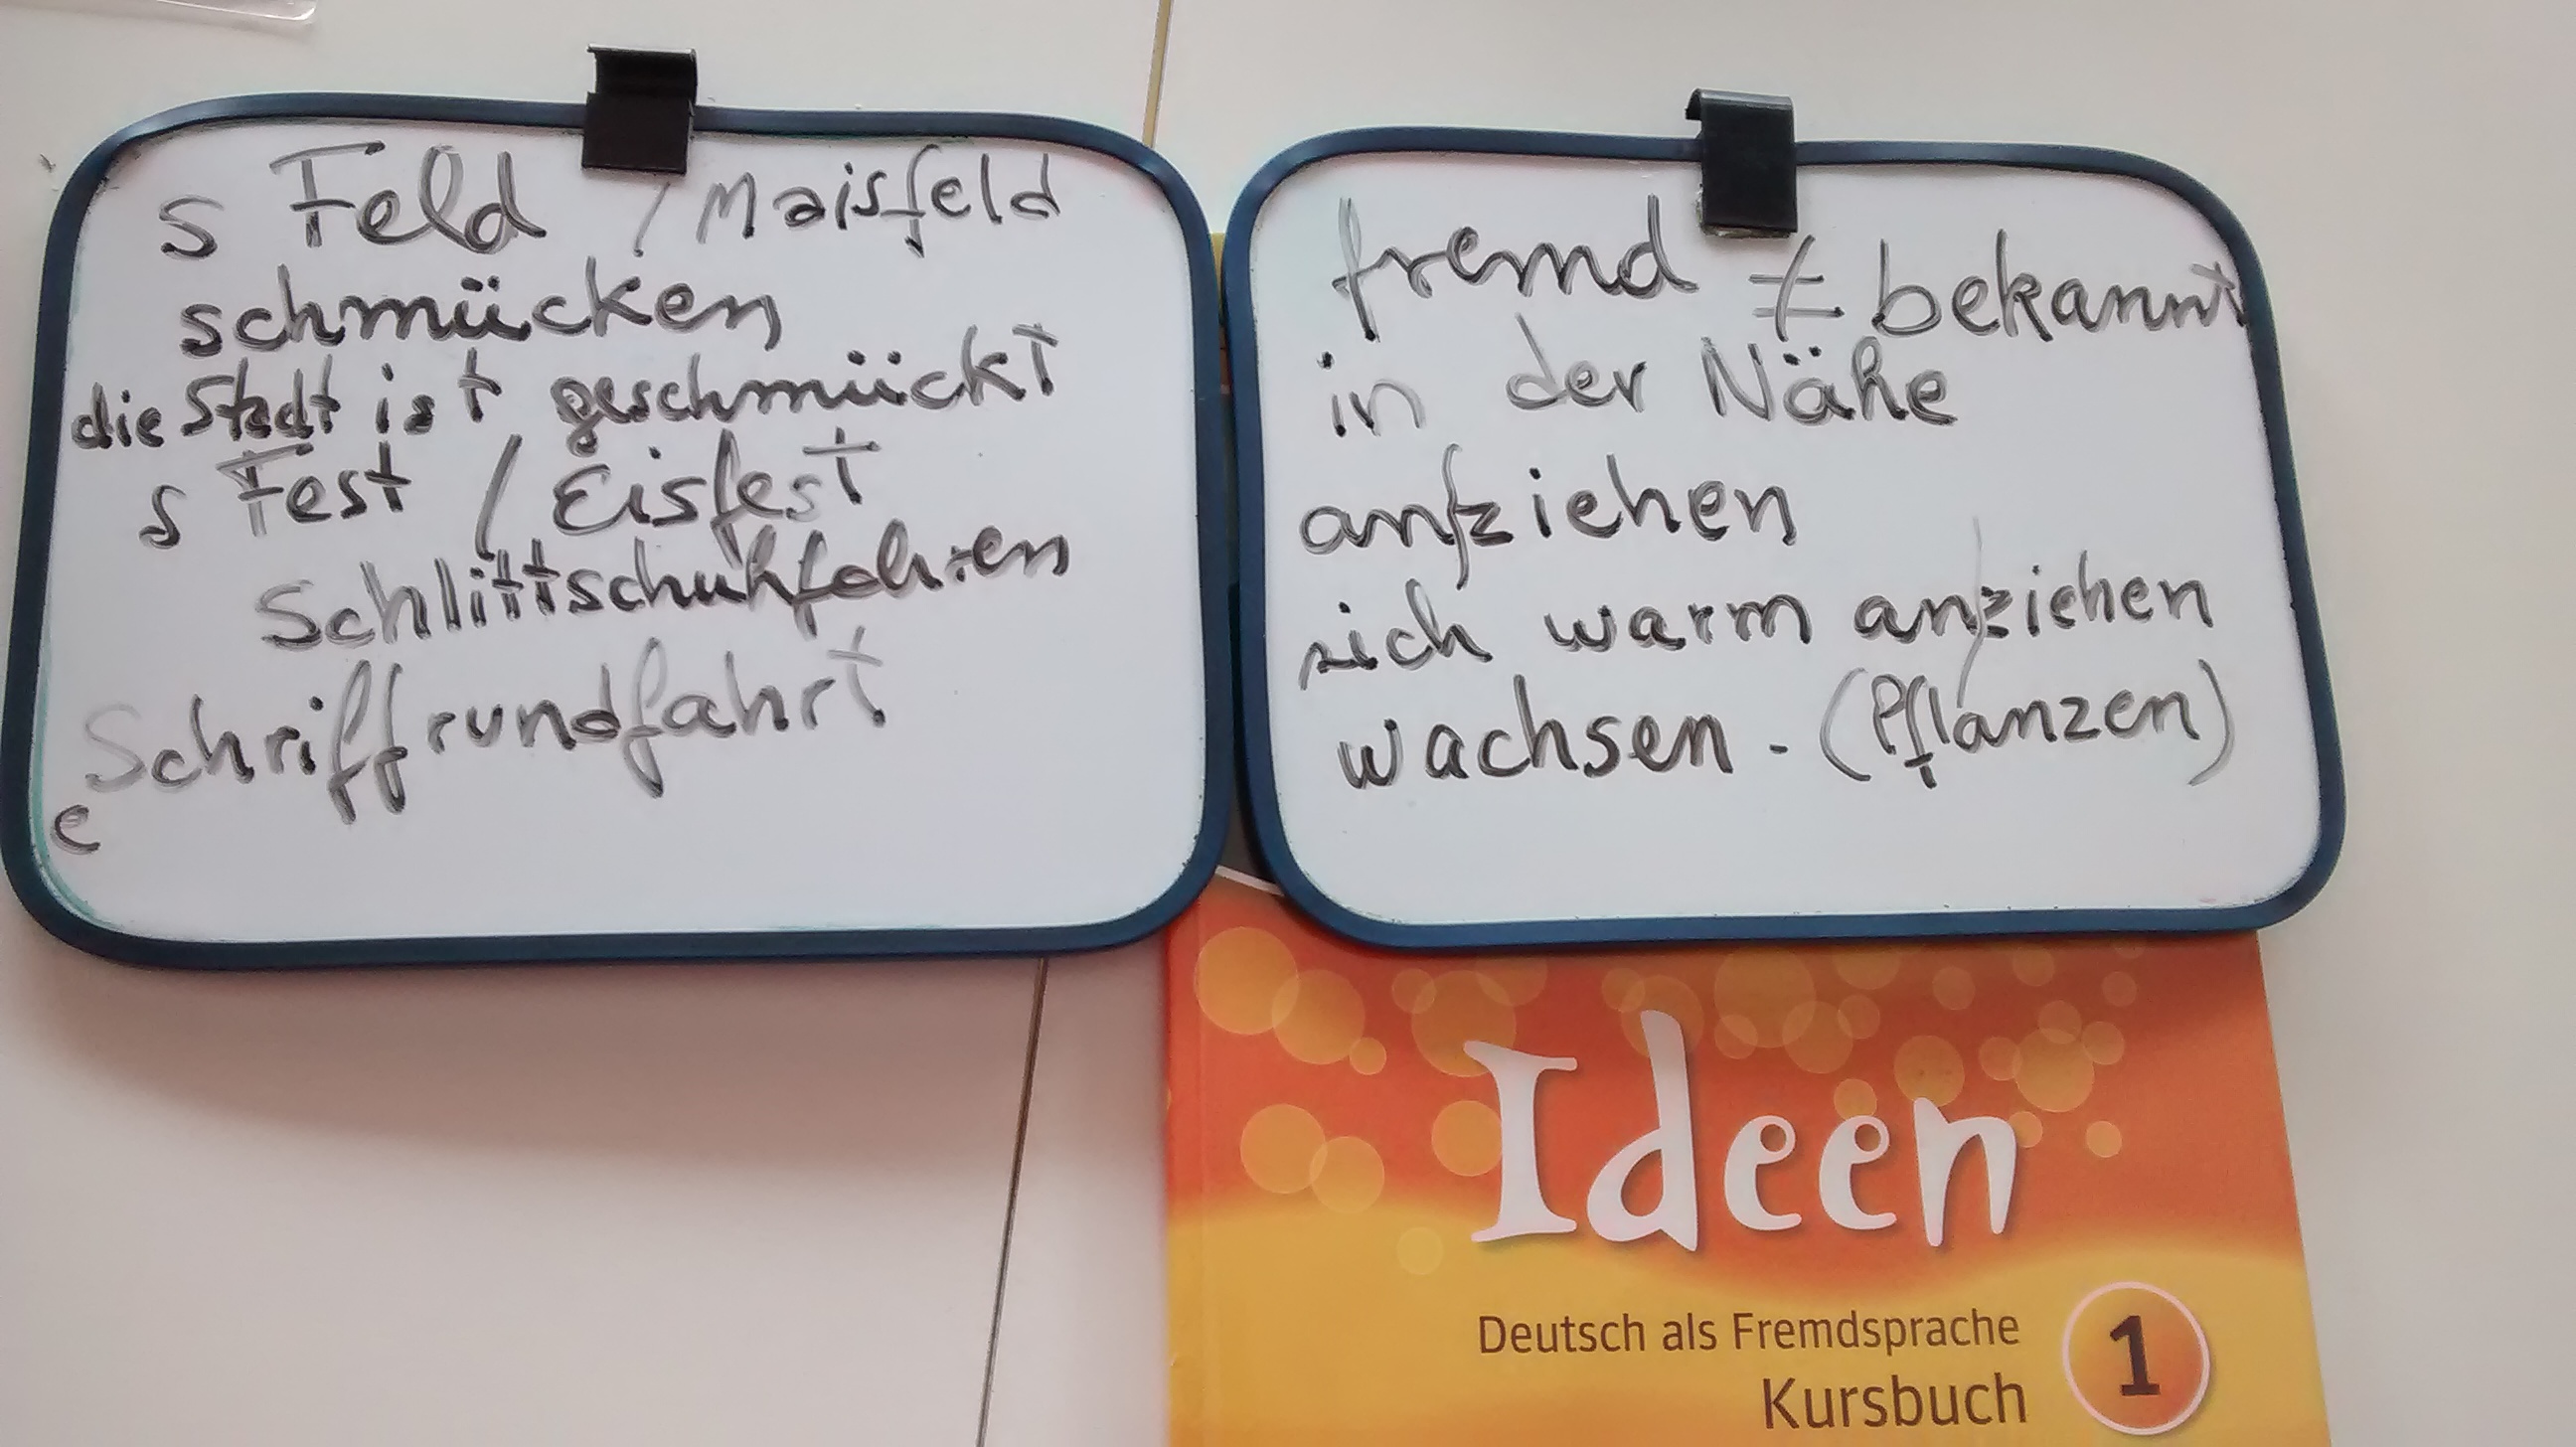 s Feld / Maisfeld
schmücken
die Stadt ist geschmückt
s Fest / Eisfest
Schlittschuhfahren
Schriffrundfahrt
e
fremd ≠ bekannt
in der Nähe
an/ziehen
sich warm an/ziehen
wachsen - (Pflanzen)
Ideen
Deutsch als Fremdsprache
Kursbuch
1